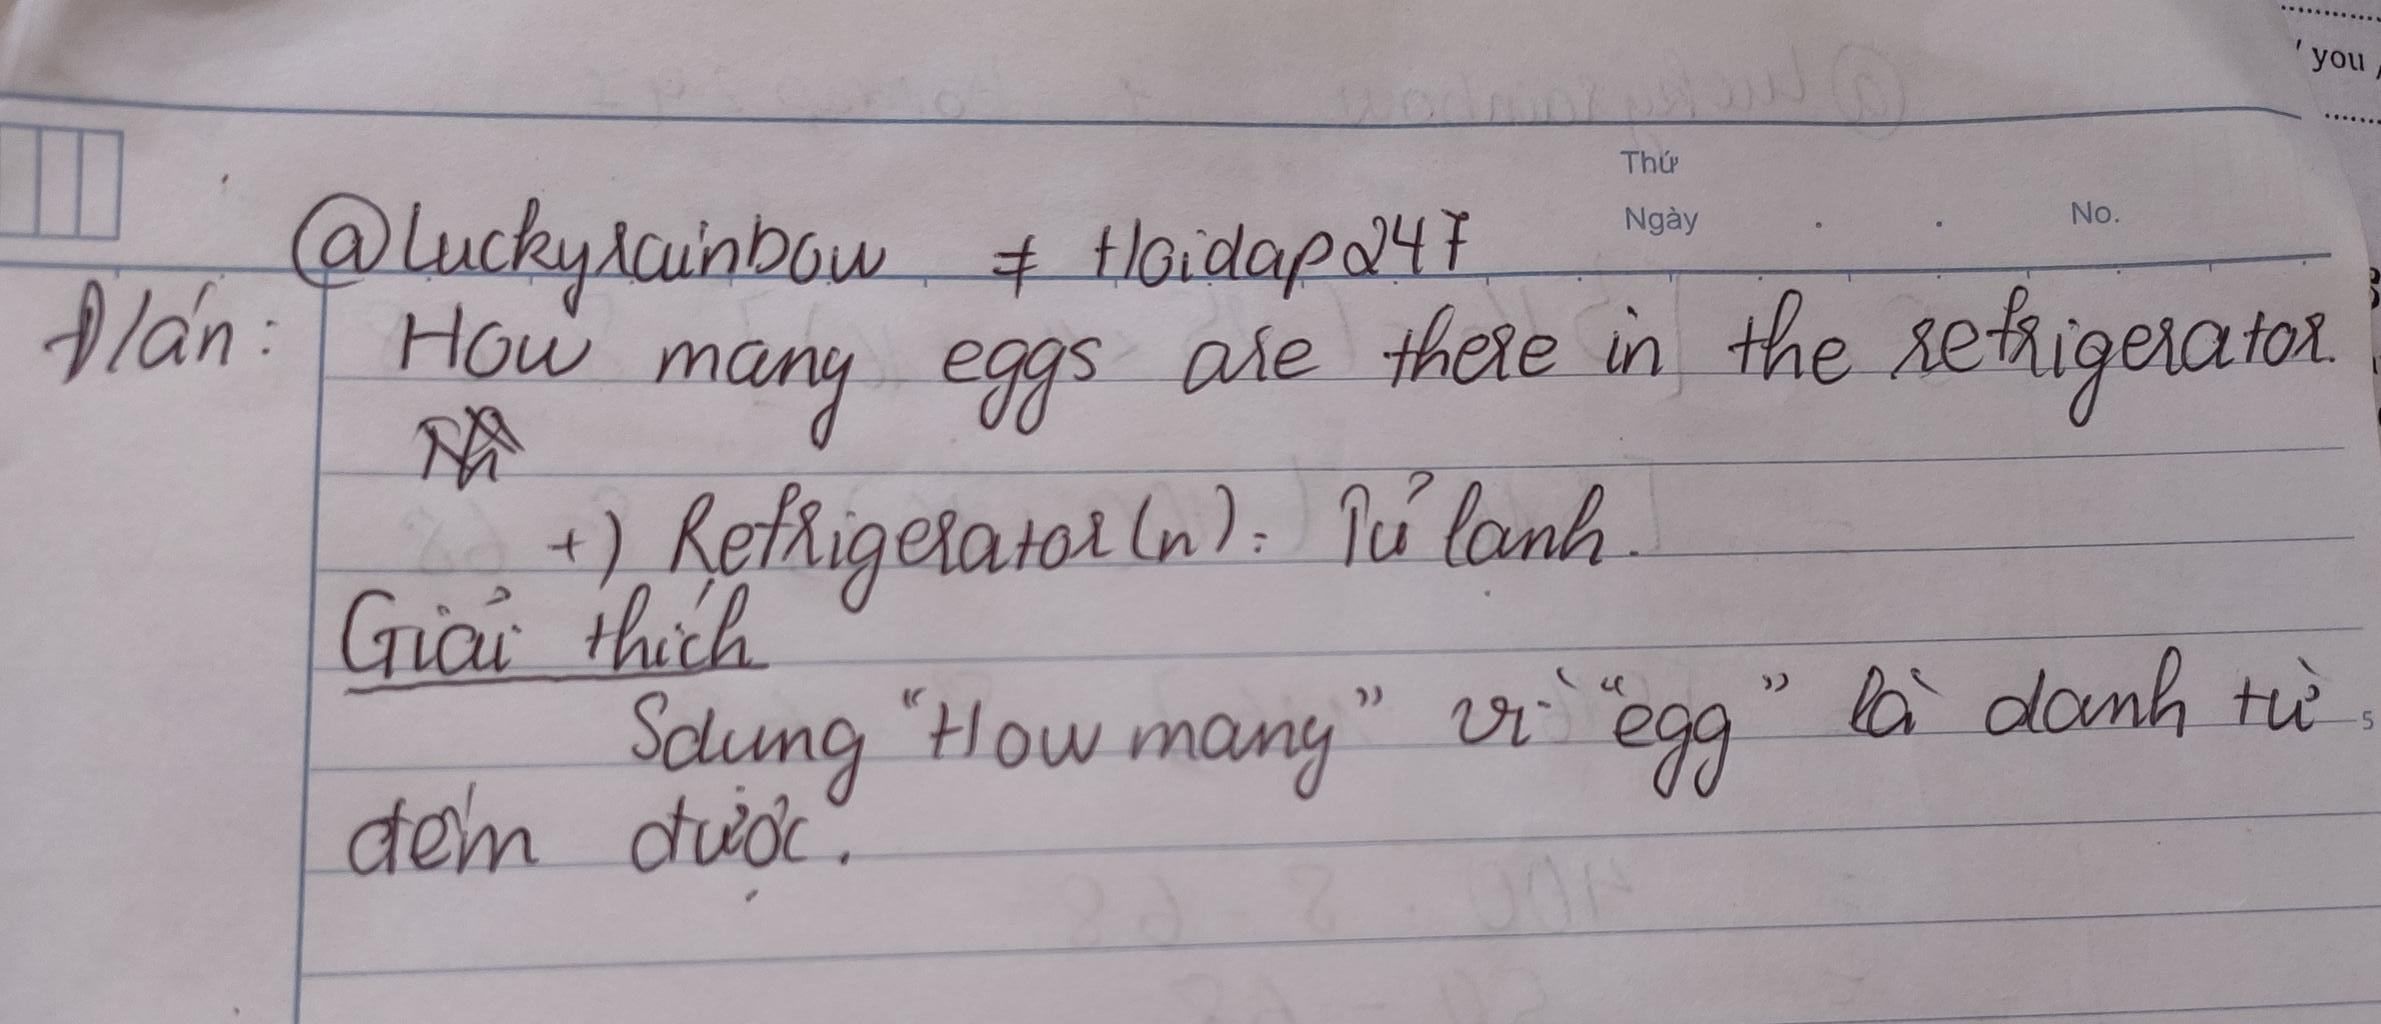 ' you
Thứ
Ngày . . No.
@luckyrainbow ≠ Hoidap247
Đ/án: How many eggs are there in the refrigerator.
+) Refrigerator (n): Tủ lạnh.
Giải thích
Sdụng "How many" vì "egg" là danh từ
đếm được.